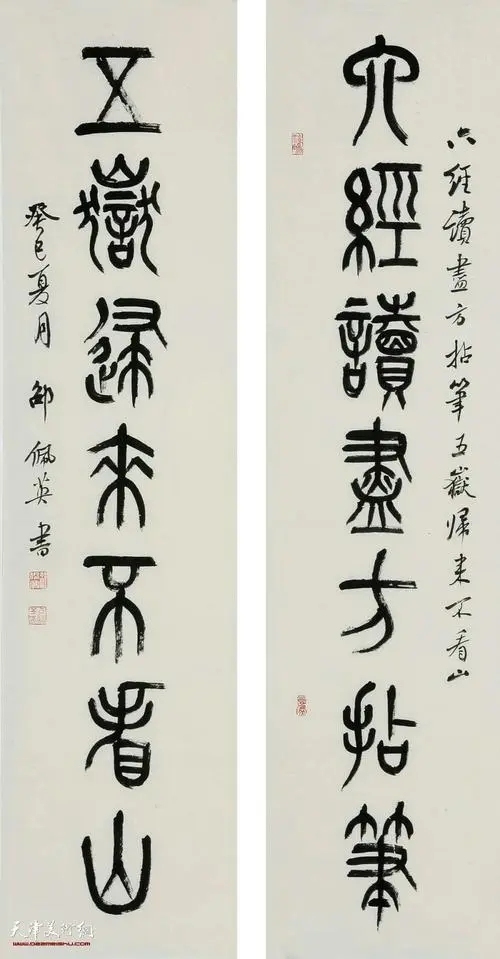 六經讀盡方拈筆五嶽帰来不看山
六經讀盡方拈筆
五嶽歸來不看山
癸巳夏月 邵佩英書
天津美術網
www.022meishu.com